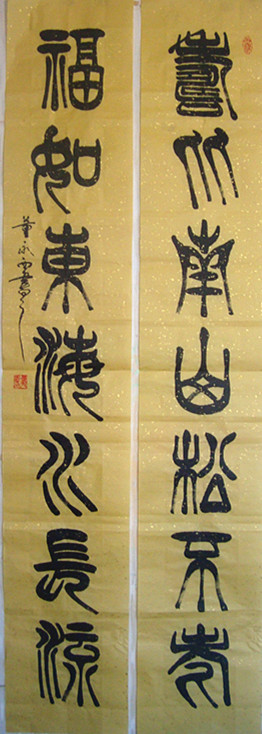 壽比南山松不老
福如東海水長流